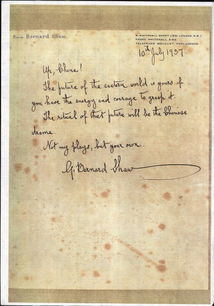 From Bernard Shaw.
4, WHITEHALL COURT (130) LONDON, S.W.1.
10th July 1937
Up, China!
The future of the eastern world is yours if
you have the energy and courage to grasp it
The ritual of that future will be the Chinese
drama
Not my plays, but your own.
G. Bernard Shaw